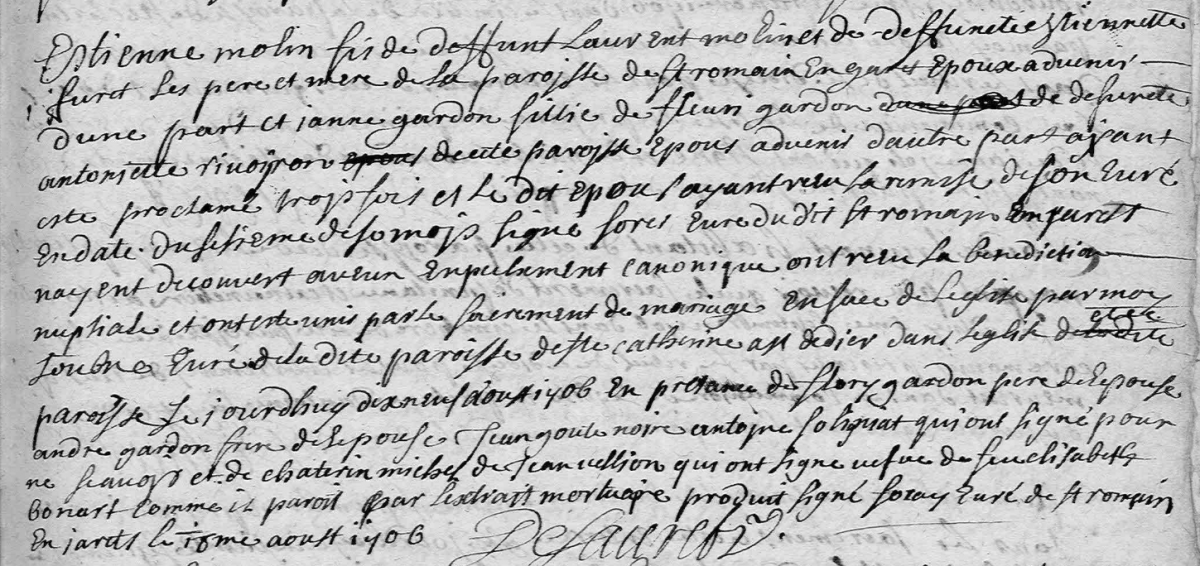 Estienne molin fis de deffunt Laurent molin et de deffuncte estiennette
furet Les pere et mere de la paroisse de st romain En garet Epoux advenir
dune part et janne gardon fillie de fleuri gardon de defuncte
antoniette rivoiron de cete paroisse Epous advenir dautre part ajant
este proclamé troijs fois et Le dit Epou layant reeu la remise de son Curé
En date du sesieme de se mojs signe Curé du dit st romain En jarest
nayent decouvert aucun Enpechement canonique ont receu La benediction
nuptiale et ont este unis par le sacrement de mariage En face de Leglise par moy
Curé de la dite paroisse de ste catherine a st dedier dans Leglise de
paroisse Le jourdhuy dixneuf aoust 1706 En presance de flory gardon pere de Lepouse
andre gardon frere de Lepouse Jean goute noire antoine solignat qui ont signé pour
ne scavoir et de chaterin michel de Jean vellion qui ont signe vefve de feu elisabeth
bonart comme il paroit par Lextrait mortuaire produit signé Curé de st romain
En jarets le 18me aoust 1706